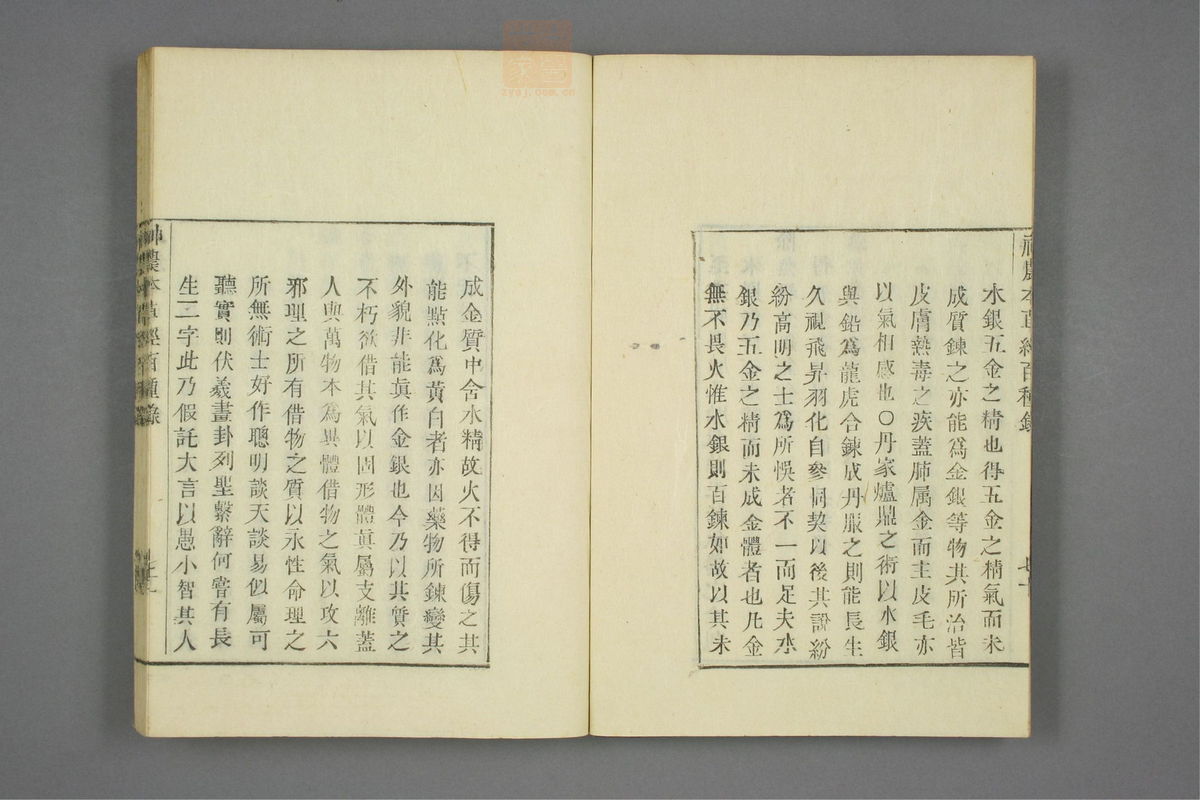 神農本草經百種錄
水銀五金之精也得五金之精氣而未
成質鍊之亦能爲金銀等物其所治皆
皮膚熱毒之疾蓋肺属金而主皮毛亦
以氣相感也〇丹家爐鼎之術以水銀
與鉛爲龍虎合鍊成丹服之則能長生
久視飛昇羽化自參同契以後其說紛
紛高明之士爲所悞者不一而足夫水
銀乃五金之精而未成金體者也凡金
無不畏火惟水銀則百鍊如故以其未
成金質中含水精故火不得而傷之其
能點化爲黃白者亦因藥物所鍊變其
外貌非能眞作金銀也今乃以其質之
不朽欲借其氣以固形體眞屬支離蓋
人與萬物本爲異體借物之氣以攻六
邪理之所有借物之質以永性命理之
所無術士好作聰明談天談易似屬可
聽實則伏羲畫卦列聖繫辭何嘗有長
生二字此乃假託大言以愚小智其人
神農本草經百種錄
zysj.com.cn